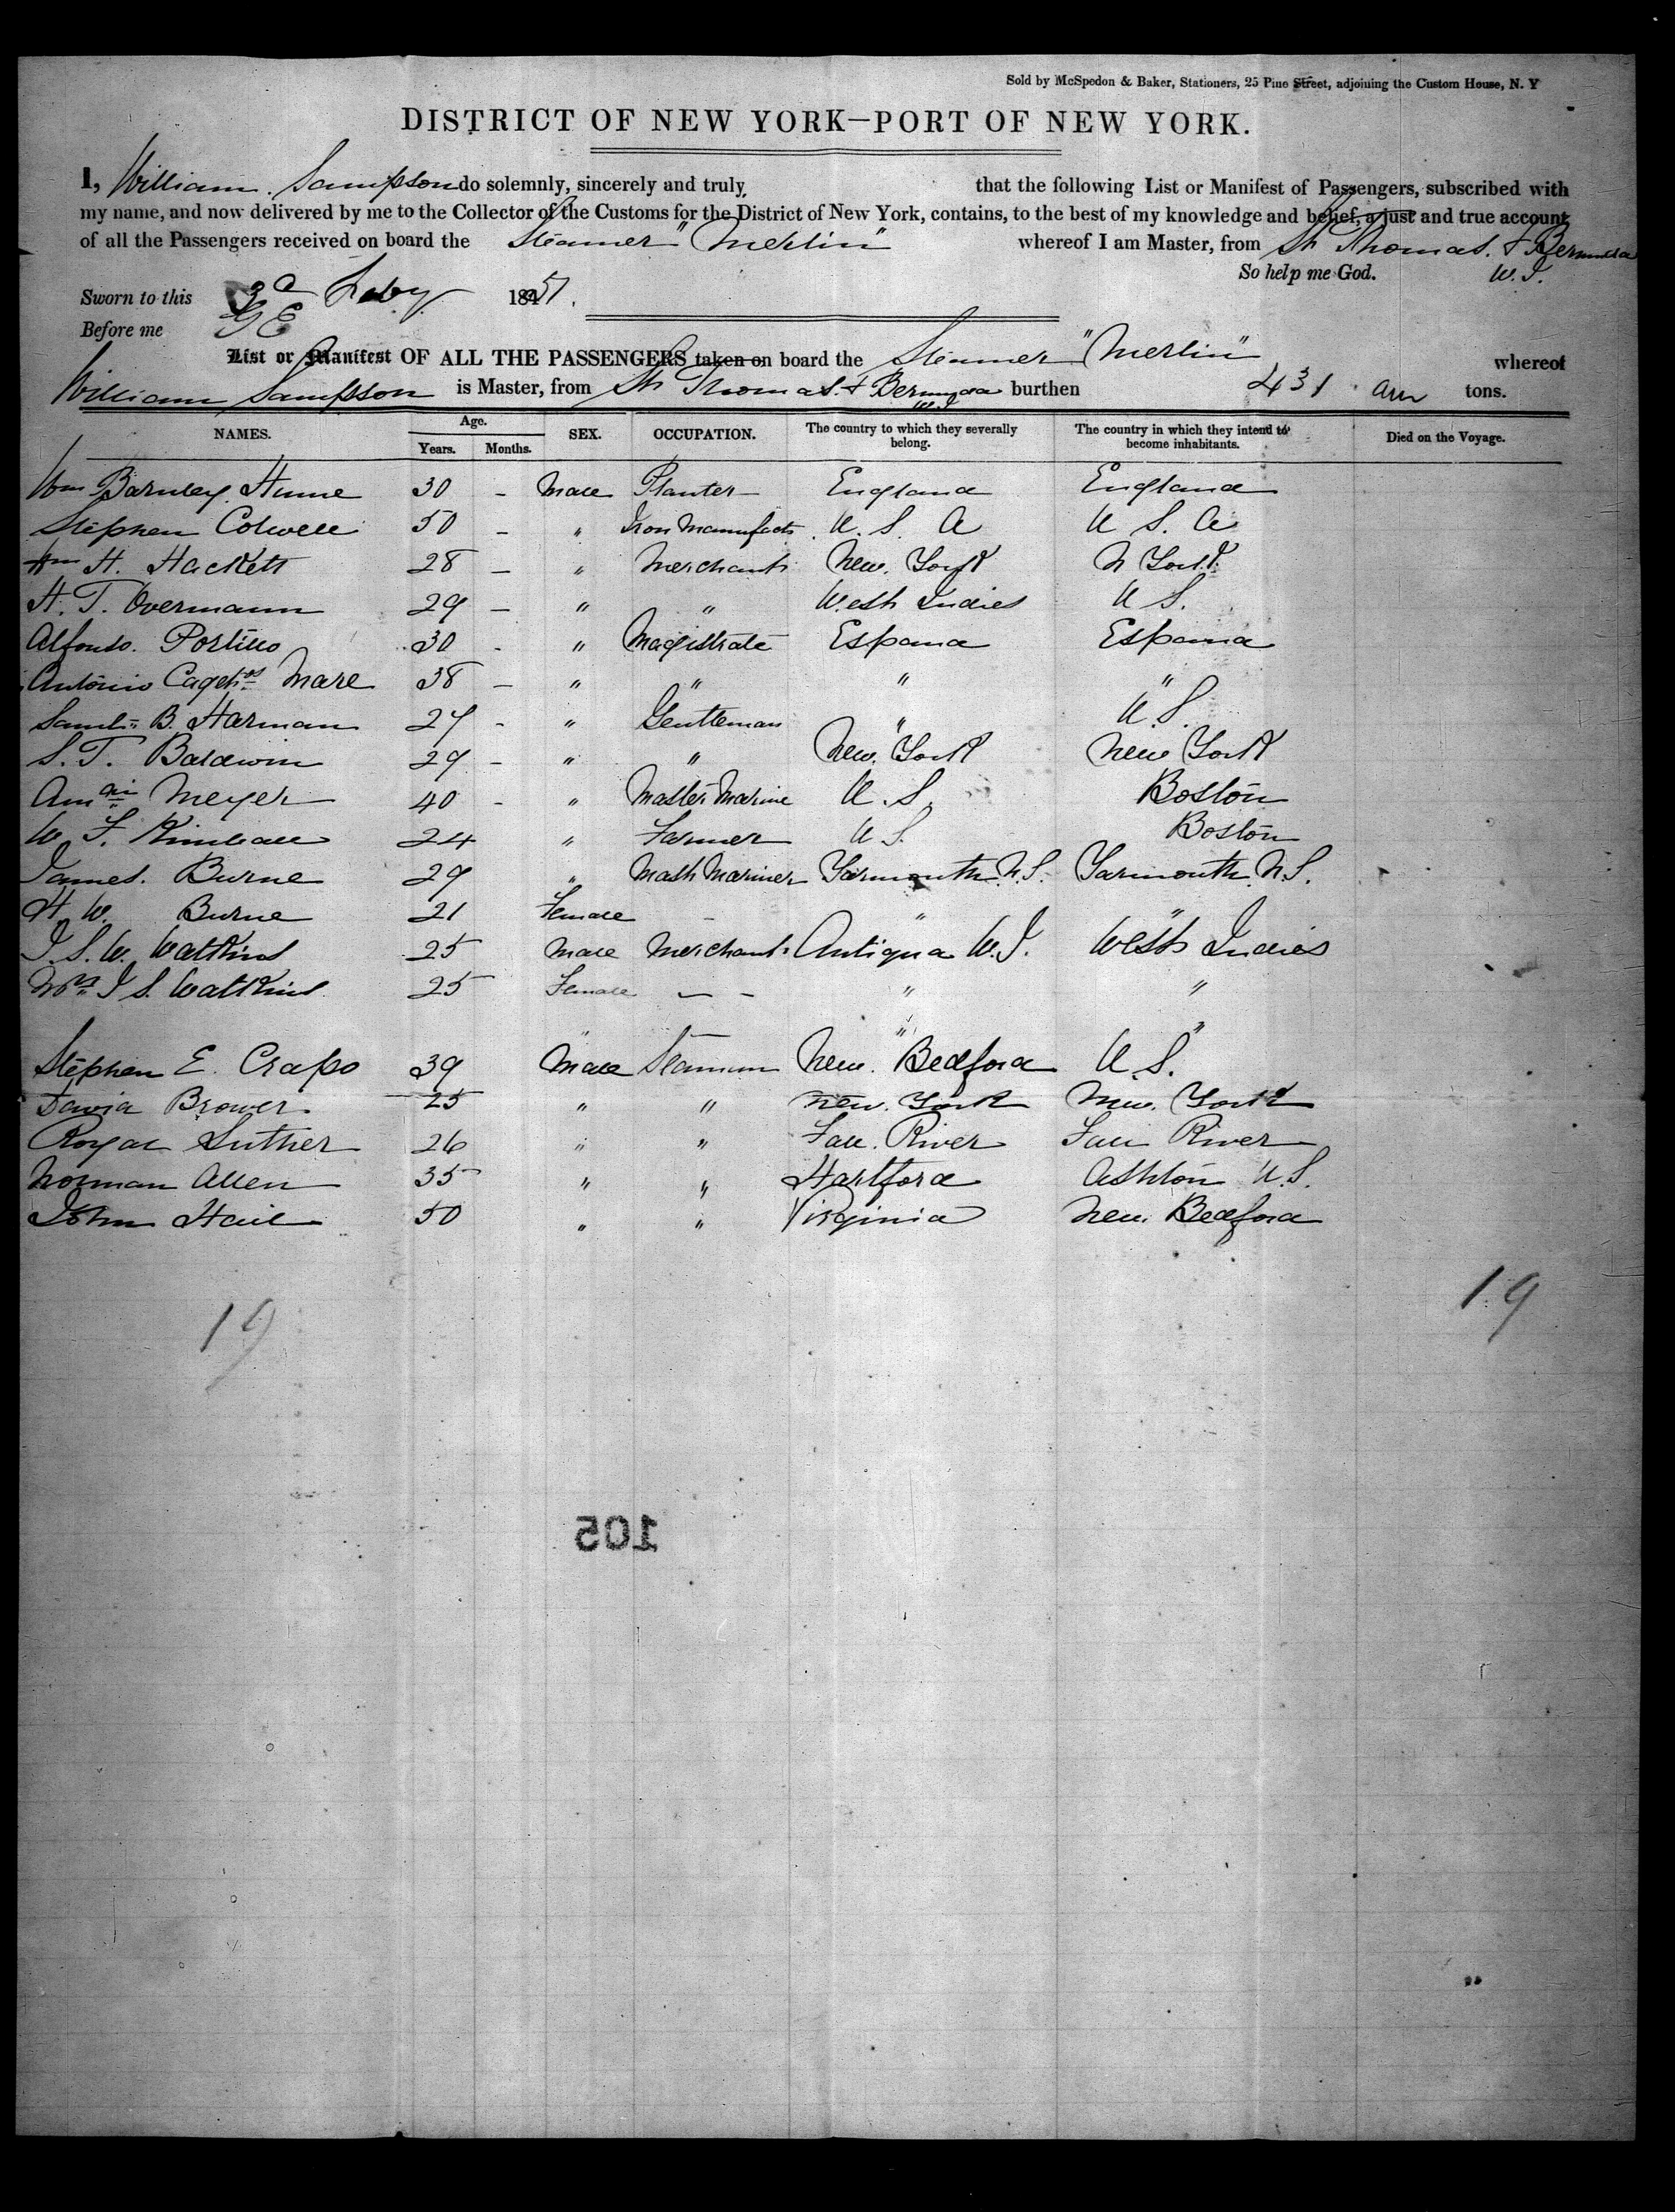 Sold by McSpedon & Baker, Stationers, 25 Pine Street, adjoining the Custom House, N. Y
DISTRICT OF NEW YORK—PORT OF NEW YORK.
I, William Sampson do solemnly, sincerely and truly that the following List or Manifest of Passengers, subscribed with
my name, and now delivered by me to the Collector of the Customs for the District of New York, contains, to the best of my knowledge and belief, a just and true account
of all the Passengers received on board the Steamer "Merlin" whereof I am Master, from St Thomas. & Bermuda
So help me God. W. I.
Sworn to this 3d Feby 1851.
Before me GE
List or Manifest OF ALL THE PASSENGERS taken on board the Steamer "Merlin" whereof
William Sampson is Master, from St Thomas. & Bermuda W.I burthen 431 tons.
NAMES. Age. Years. Months. SEX. OCCUPATION. The country to which they severally belong. The country in which they intend to become inhabitants. Died on the Voyage.
Wm Barnley Hume 30 - Male Planter England England
Stephen Colwell 50 - " Iron Manufactr U. S. A U S. A
Wm H. Hackett 28 - " Merchant New. York N York
H. T. Overmann 29 - " " West Indies U S.
Alfonso. Portillo 30 - " Magistrate Espana Espana
Antonio Mare 38 - " " " "
Saml B. Harman 27 - " Gentleman " U.S.
S. T. Baldwin 29 - " " New. York New York
Meyer 40 - " Master Marine U.S. Boston
W. F. Kimball 24 " Farmer U S. Boston
James. Burne 29 " Mast Mariner Yarmouth N.S. Yarmouth N.S.
H. W. Burne 21 Female - " "
J. S. W. Watkins 25 Male Merchant Antigua W.I. West Indies
Mrs J S. Watkins 25 Female — - " "
" — " "
Stephen E. Crapo 39 Male Seaman New. Bedford U.S.
David Brower 25 " " New. York New. York
Royal Luther 26 " " Fall. River Fall River
Norman Allen 35 " " Hartford Ashton U.S.
John Hail 50 " " Virginia New. Bedford
19 19
105